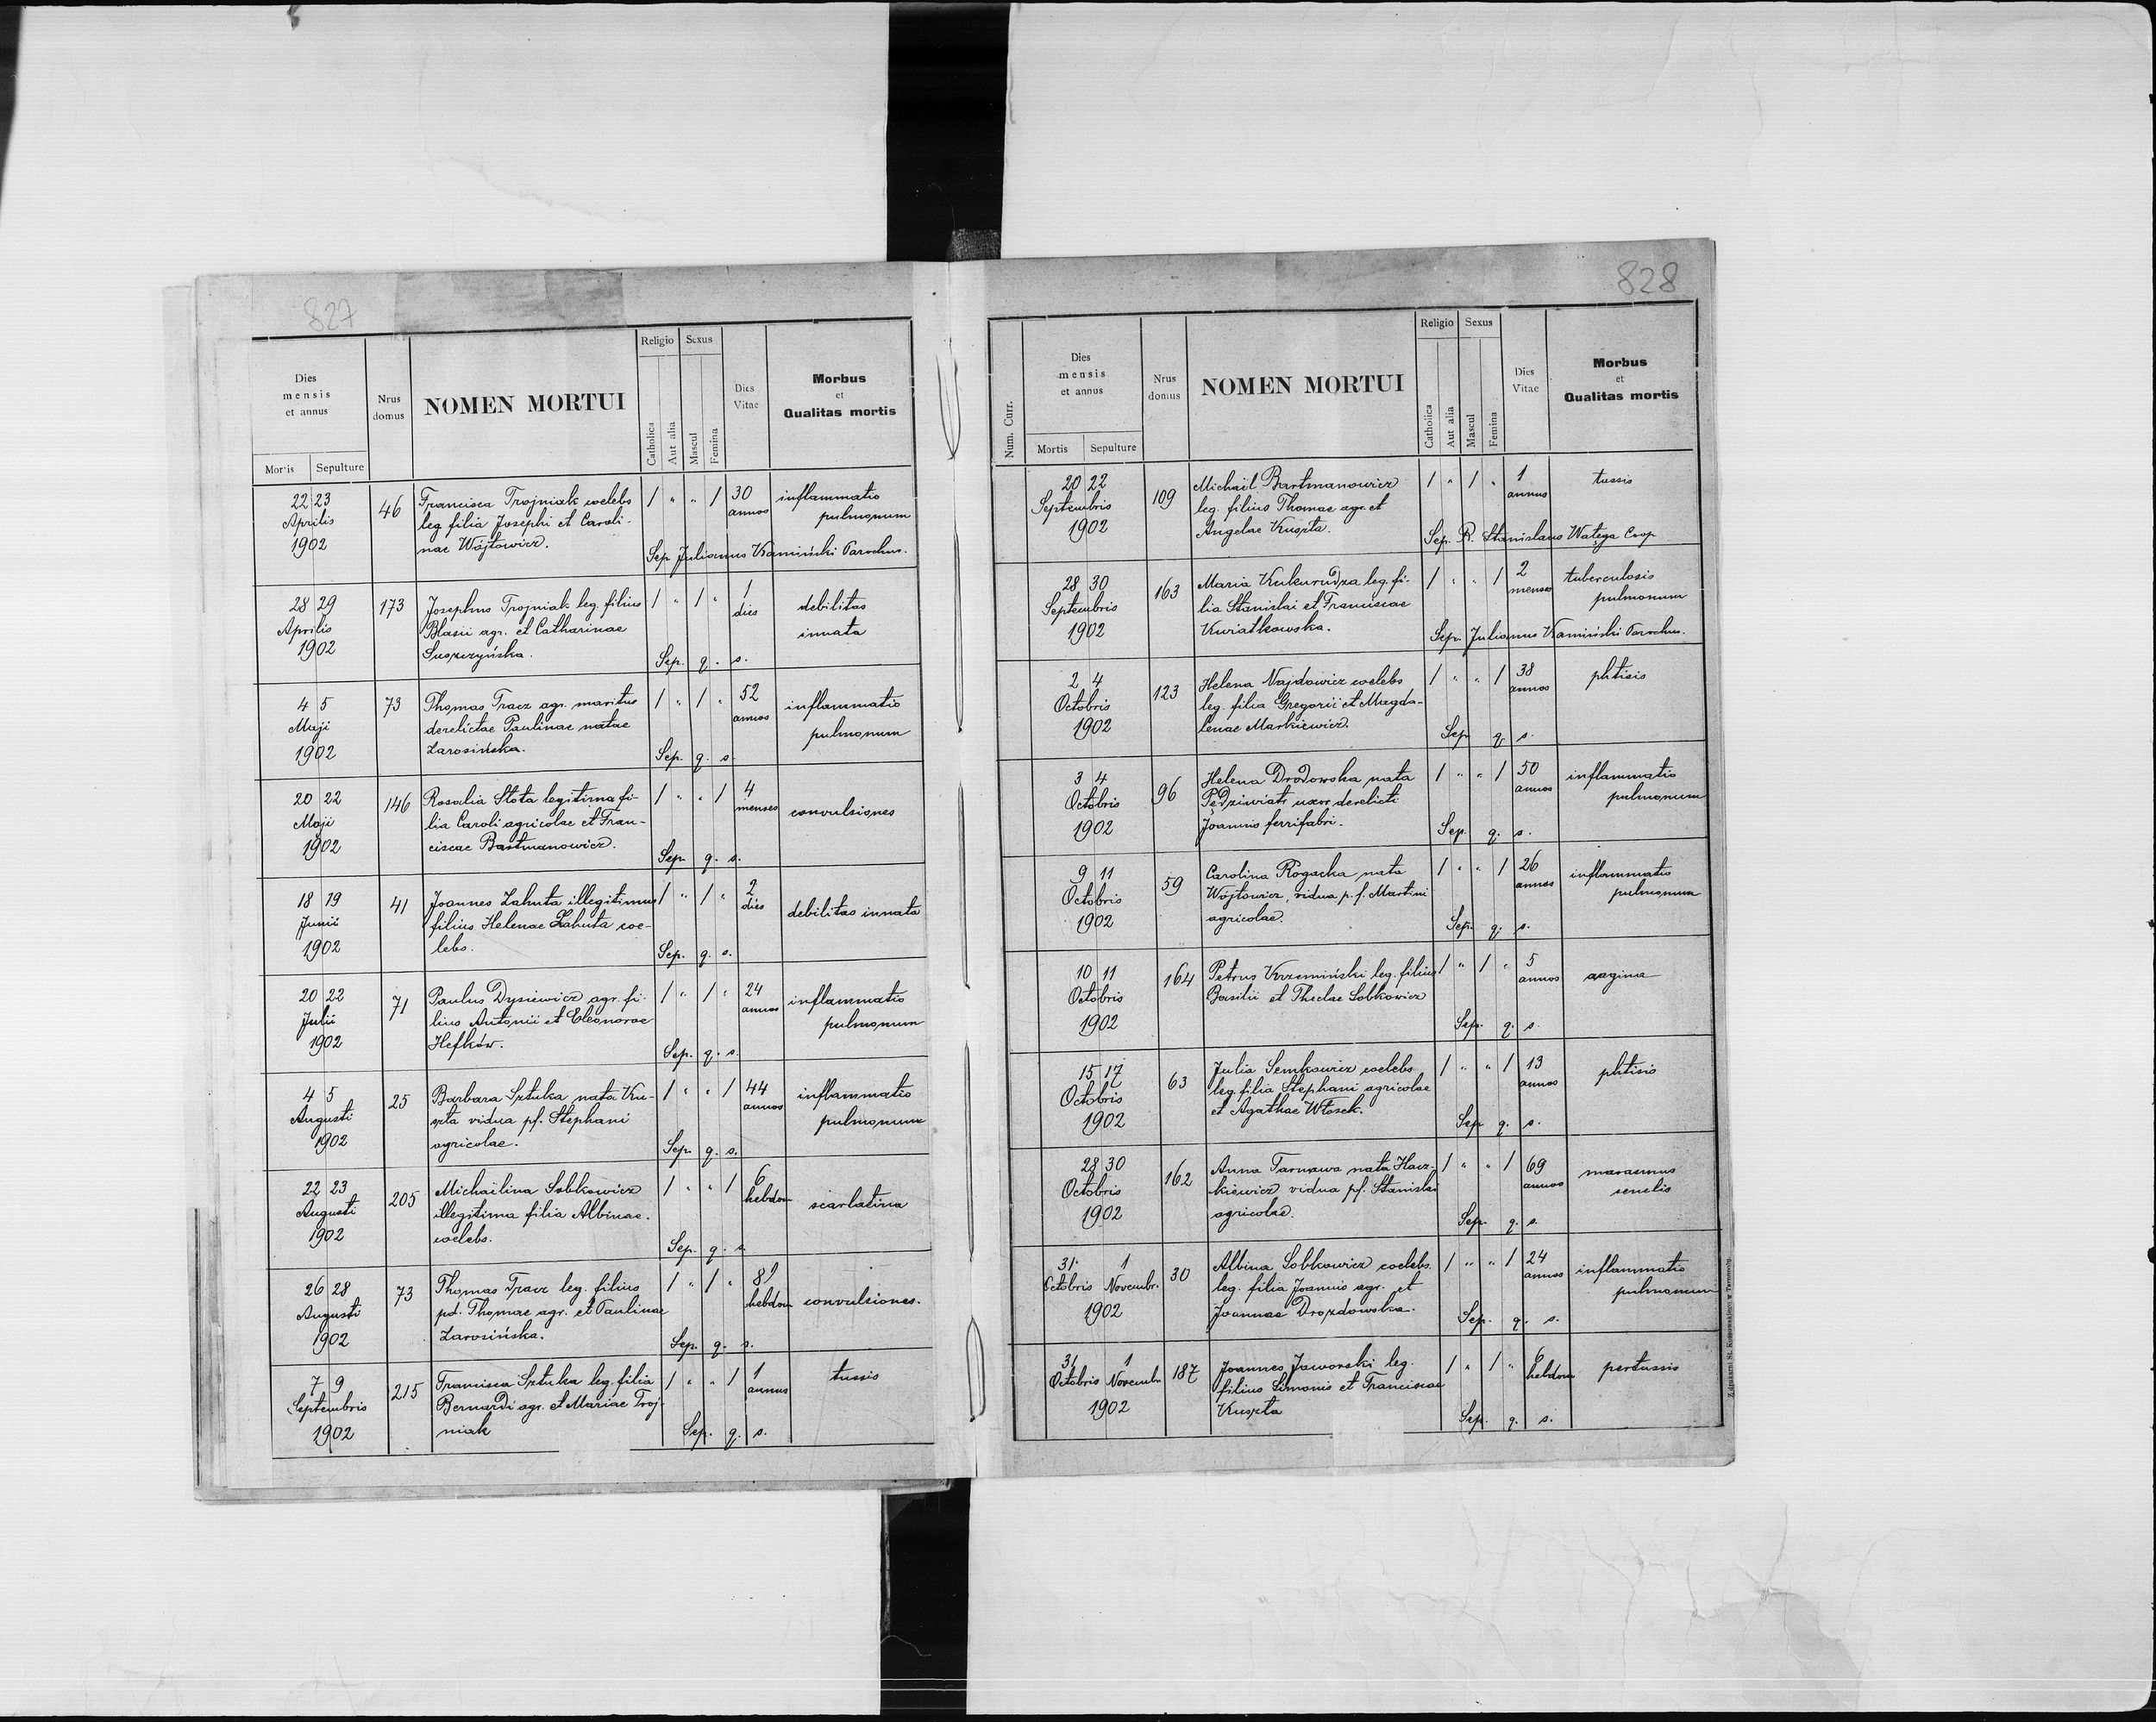 827
Dies
mensis
et annus
Nrus
domus
NOMEN MORTUI
Religio
Sexus
Catholica
Aut alia
Mascul
Femina
Dies
Vitae
Morbus
et
Qualitas mortis
Mortis
Sepulture
22 23
Aprilis
1902
46
Francisca Trojniak coelebs
leg. filia Josephi et Caroli-
nae Wójtowicz.
1 " " 1
30
annos
inflammatio
pulmonum
Sep. Julianus Kamiński Parochus.
28 29
Aprilis
1902
173
Josephus Trojniak leg. filius
Blasii agr. et Catharinae
Suszczyńska.
1 " 1 "
1
dies
debilitas
innata
Sep. q. s.
4 5
Maji
1902
73
Thomas Tracz agr. maritus
derelictae Paulinae natae
Zarosińska.
1 " 1 "
52
annos
inflammatio
pulmonum
Sep. q. s.
20 22
Maji
1902
146
Rosalia Słota legitima fi-
lia Caroli agricolae et Fran-
ciscae Bartmanowicz.
1 " " 1
4
menses
convulsiones
Sep. q. s.
18 19
Junii
1902
41
Joannes Zahuta illegitimus
filius Helenae Zahuta coe-
lebs.
1 " 1 "
2
dies
debilitas innata
Sep. q. s.
20 22
Julii
1902
71
Paulus Dysiewicz agr. fi-
lius Antonii et Eleonorae
Hefków.
1 " 1 "
24
annos
inflammatio
pulmonum
Sep. q. s.
4 5
Augusti
1902
25
Barbara Sztuka nata Ku-
szta vidua pf. Stephani
agricolae.
1 " " 1
44
annos
inflammatio
pulmonum
Sep. q. s.
22 23
Augusti
1902
205
Michaëlina Sobkowicz
illegitima filia Albinae
coelebs.
1 " " 1
6
hebdom
scarlatina
Sep. q. s.
26 28
Augusti
1902
73
Thomas Tracz leg. filius
pd. Thomae agr. et Paulinae
Zarosińska.
1 " 1 "
hebdom
convulsiones.
Sep. q. s.
7 9
Septembris
1902
215
Francisca Sztuka leg. filia
Bernardi agr. et Mariae Troj-
niak
1 " " 1
1
annus
tussis
Sep. q. s.
828
Num. Curr.
Dies
mensis
et annus
Nrus
domus
NOMEN MORTUI
Religio
Sexus
Catholica
Aut alia
Mascul
Femina
Dies
Vitae
Morbus
et
Qualitas mortis
Mortis
Sepulture
20 22
Septembris
1902
109
Michaël Bartmanowicz
leg. filius Thomae agr. et
Angelae Kuszta.
1 " 1 "
1
annus
tussis
Sep. R. Stanislaus Watęga Coop
28 30
Septembris
1902
163
Maria Kukurudza leg. fi-
lia Stanislai et Franciscae
Kwiatkowska.
1 " " 1
2
menses
tuberculosis
pulmonum
Sep. Julianus Kamiński Parochus.
2 4
Octobris
1902
123
Helena Najdowicz coelebs
leg. filia Gregorii et Magda-
lenae Markiewicz.
1 " " 1
38
annos
phtisis
Sep. q. s.
3 4
Octobris
1902
96
Helena Drodowska nata
Pędziwiatr uxor derelicti
Joannis ferrifabri.
1 " " 1
50
annos
inflammatio
pulmonum
Sep. q. s.
9 11
Octobris
1902
59
Carolina Rogacka nata
Wójtowicz, vidua p. f. Martini
agricolae.
1 " " 1
26
annos
inflammatio
pulmonum
Sep. q. s.
10 11
Octobris
1902
164
Petrus Krzemiński leg. filius
Basilii et Theclae Sobkowicz
1 " 1 "
5
annos
Sep. q. s.
15 17
Octobris
1902
63
Julia Semkowicz coelebs
leg. filia Stephani agricolae
et Agathae Włosek.
1 " " 1
13
annos
phtisis
Sep. q. s.
28 30
Octobris
1902
162
Anna Tarnawa nata Hacz-
kiewicz vidua pf. Stanislai
agricolae.
1 " " 1
69
annos
marasmus
senelis
Sep. q. s.
31 1
Octobris Novembr.
1902
30
Albina Sobkowicz coelebs
leg. filia Joannis agr. et
Joannae Drozdowska.
1 " " 1
24
annos
inflammatio
pulmonum
Sep. q. s.
31 1
Octobris Novembr.
1902
187
Joannes Jaworski leg.
filius Simonis et Franciscae
Kuszta
1 " 1 "
6
hebdom
pertussis
Sep. q. s.